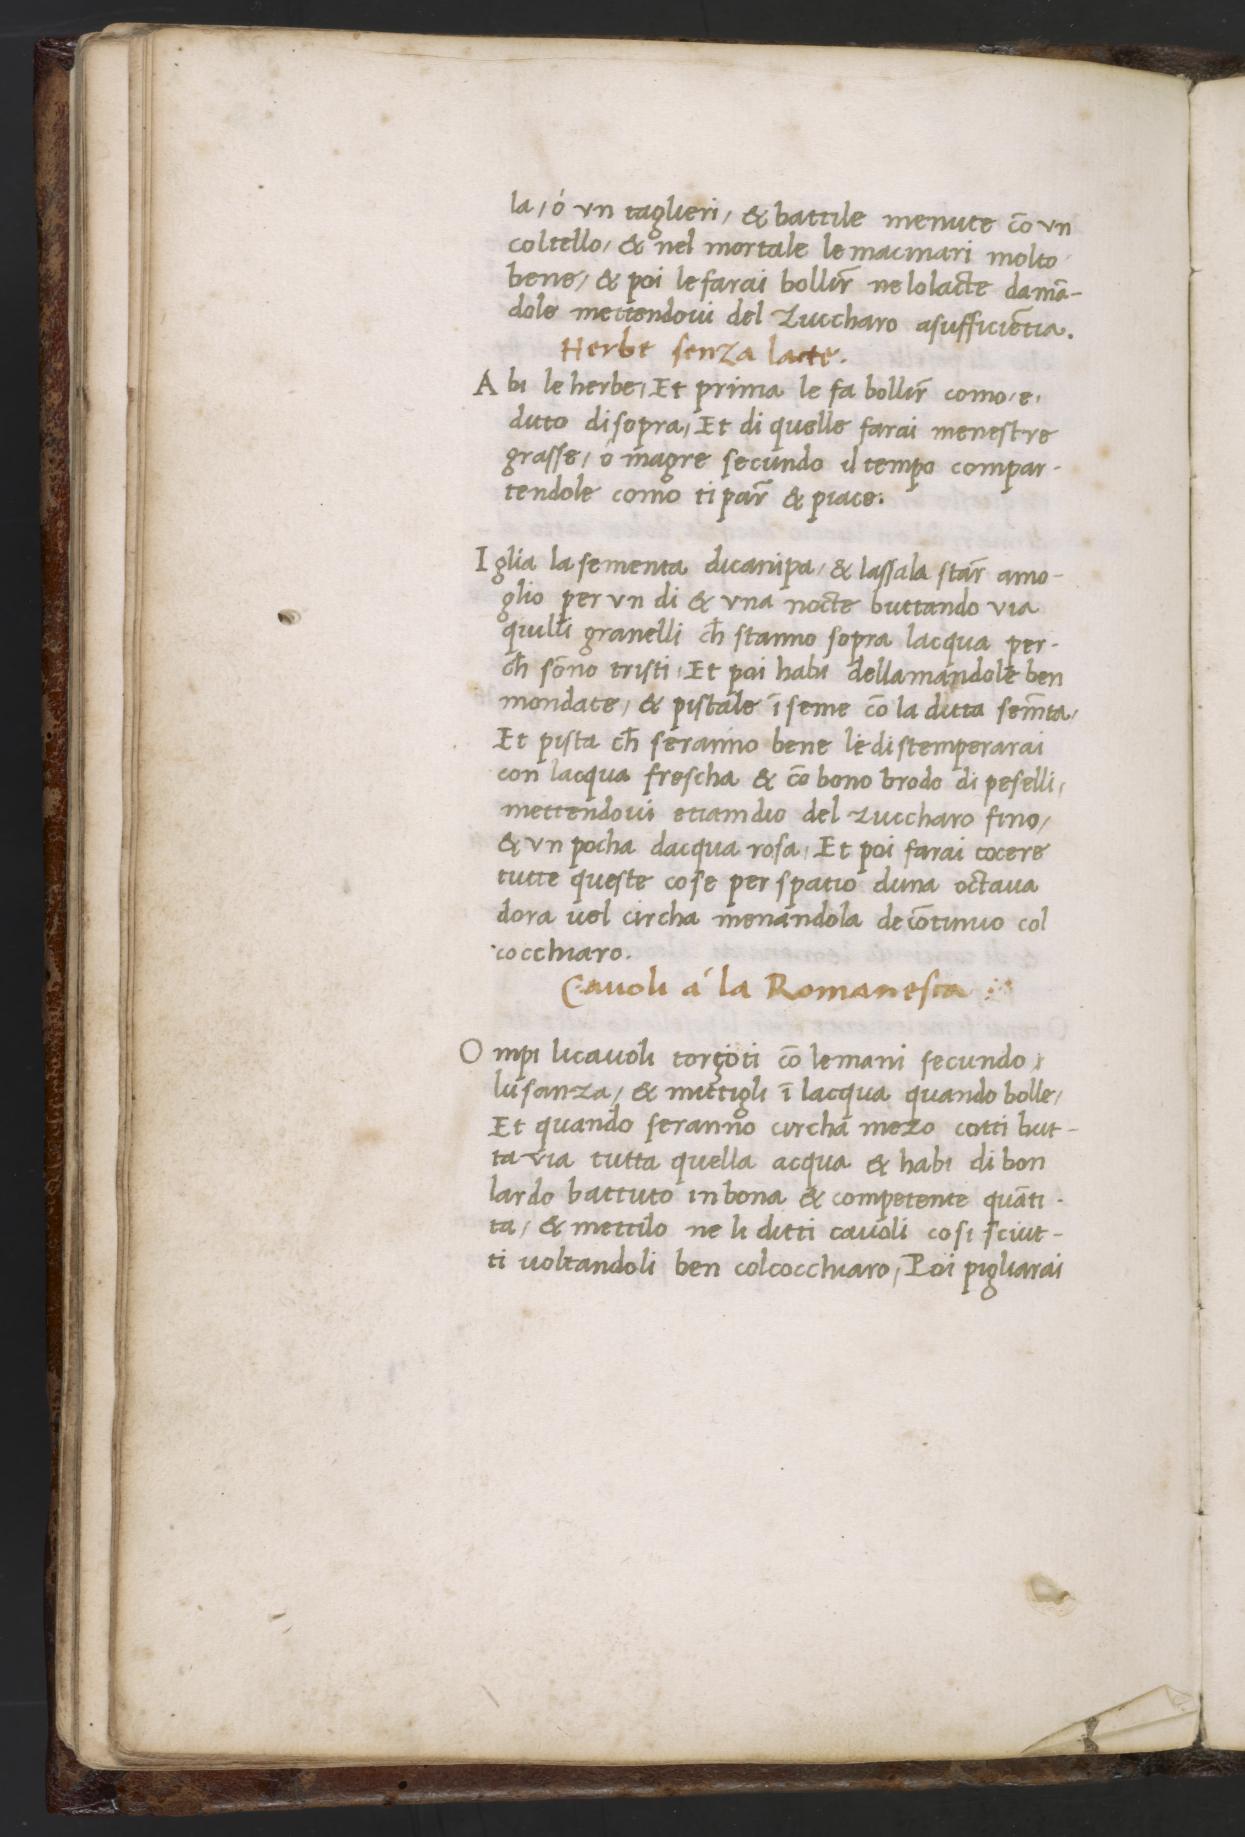 la, ó vn taglieri, & battile menute cõ vn
coltello, & nel mortale le macinari molto
bene, & poi le farai bollir̃ ne lolacte damã-
dole mettendoui del Zuccharo asufficiẽtia.
Herbe senza lacte.
A bi le herbe, Et prima le fa bollir̃ como, e,
ditto di sopra, Et di quelle farai menestre
grasse, o magre secundo il tempo compar-
tendole como ti par̃ & piace.
I glia la sementa di canipa, & lassala star̃ amo-
glio per vn di & vna nocte buttando via
quilli granelli ch̃ stanno sopra lacqua per-
ch̃ sonno tristi, Et poi habi dellamandole ben
mondate, & pistale ĩ seme cõ la ditta sem̃ta,
Et pista ch̃ seranno bene le distemperarai
con lacqua frescha & cõ bono brodo di peselli,
mettendoui etiamdio del Zuccharo fino,
& vn pocha dacqua rosa, Et poi farai cocere
tutte queste cose per spatio duna octaua
dora uel circha menandola de cõtinuo col
cocchiaro.
Cauoli á la Romanesca
O mpi li cauoli torzoti cõ le mani secundo
lusanza, & mittigli ĩ lacqua quando bolle,
Et quando seranno circha mezo cotti but-
ta via tutta quella acqua & habi di bon
lardo battuto in bona & competente quãti-
ta, & mettilo ne li ditti cauoli cosi sciut-
ti uoltandoli ben colcocchiaro, Poi pigliarai